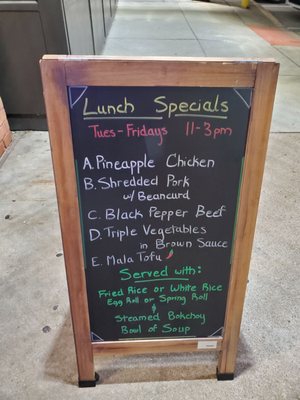 Lunch Specials
Tues-Fridays 11-3pm
A. Pineapple Chicken
B. Shredded Pork
w/ Beancurd
C. Black Pepper Beef
D. Triple Vegetables
in Brown Sauce
E. Mala Tofu
Served with:
Fried Rice or White Rice
Egg Roll or Spring Roll
Steamed Bokchoy
Bowl of Soup